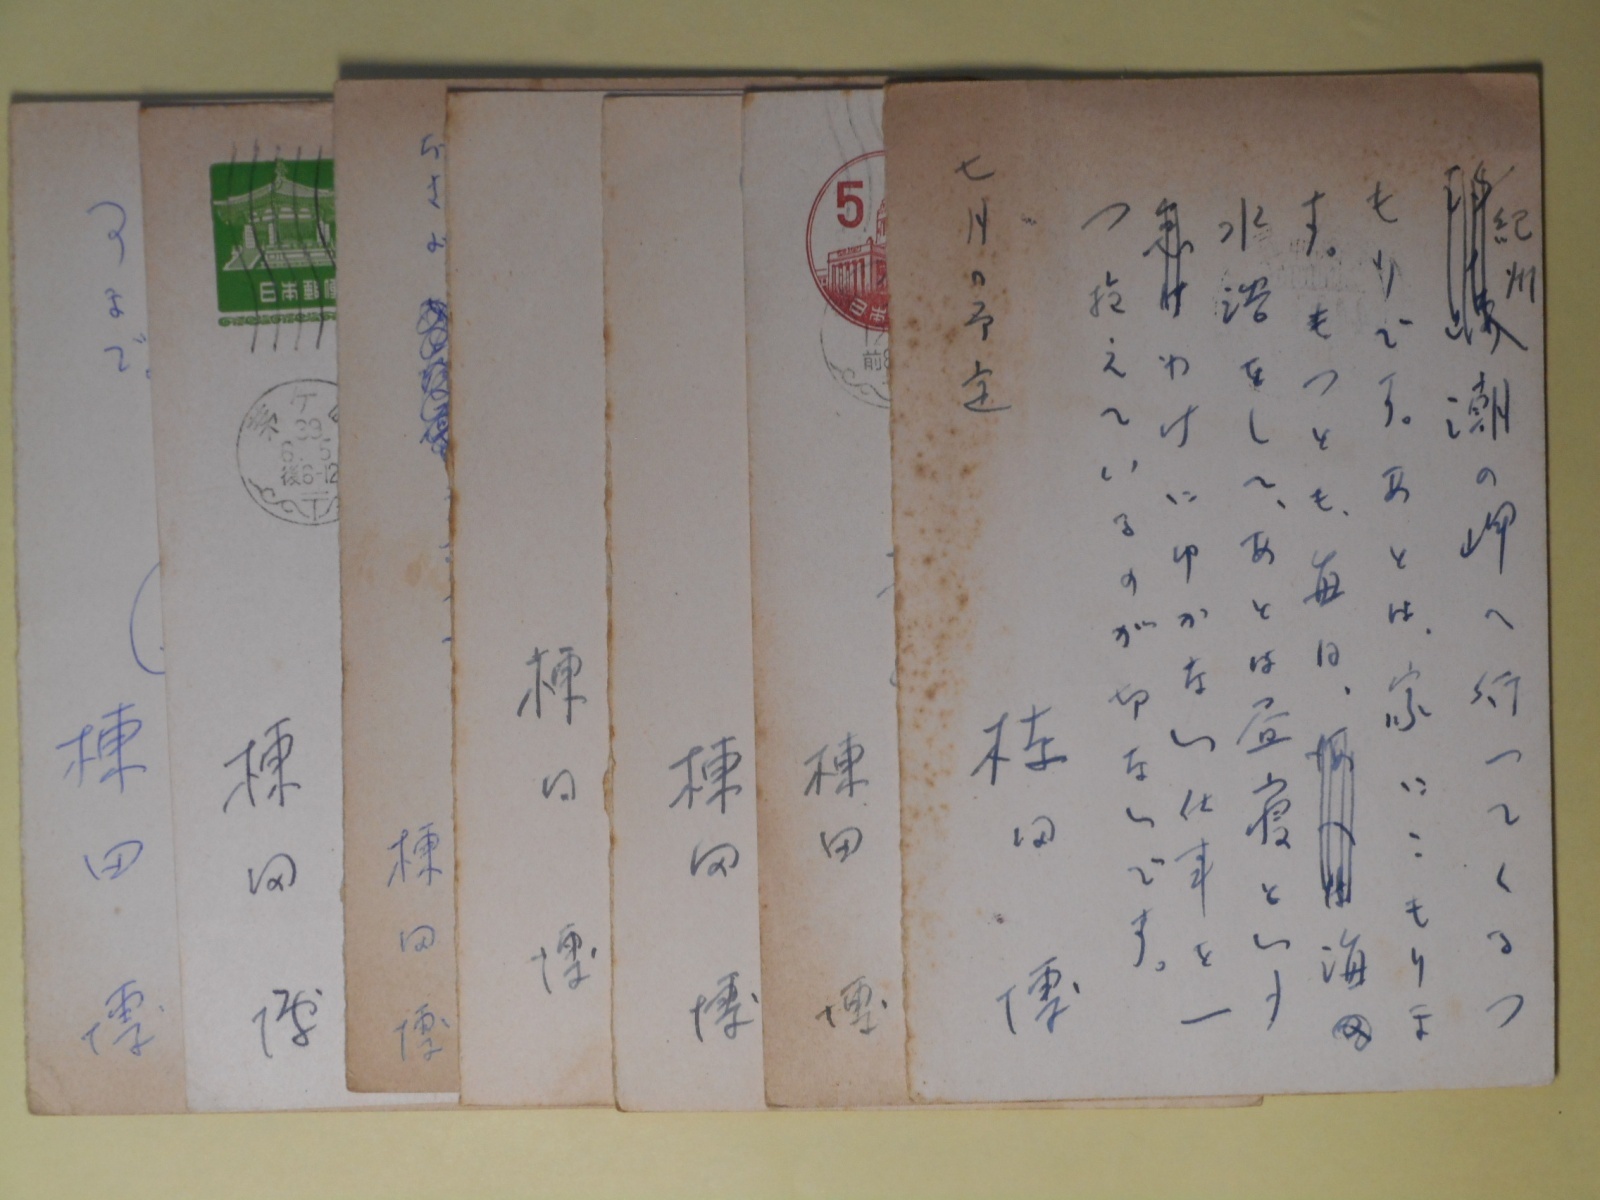 紀州
潮の岬へ行ってくるつ
もりです。あとは、家にこもりま
す。もっとも、毎日、海
水浴をして、あとは昼寝といふ
わけにゆかない仕事を一
つ抱えているのが切ないです。
七月の予定
棟田
博
5
日本
前8
棟田
博
棟田
博
棟田
博
棟田
博
日本郵便
39
6. 5
後6-12
棟田
博
棟田
博